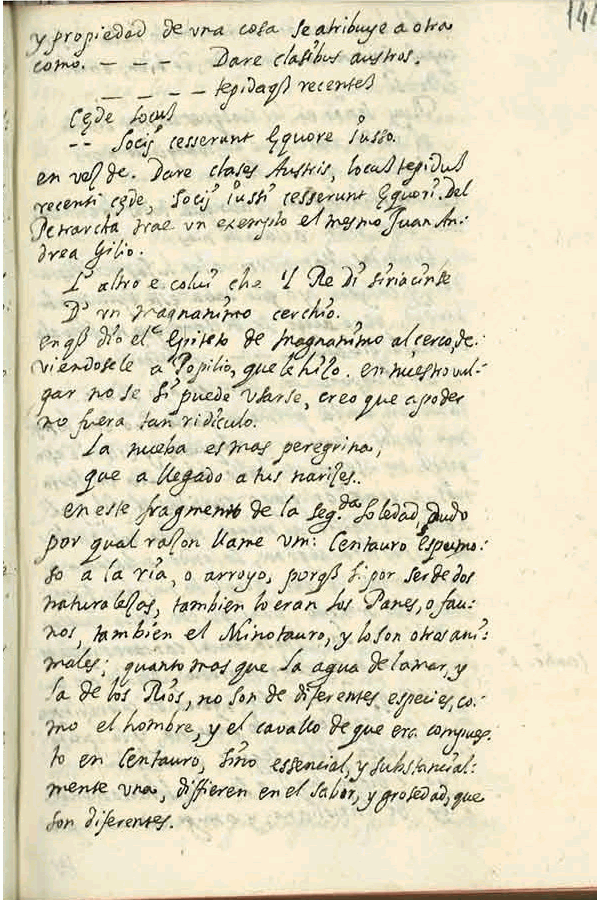 y propiedad de vna cosa se atribuye a otra
como. - - - Dare clasibus austros.
- - - - tepidaqȝ recentes
Cęde locus
-- Socijs cesserunt ęquore iusso.
en vez de. Dare clases Austris, locus tepidus
recenti cęde, Socijs iussi cesserunt ęquori. Del
Petrarcha trae vn exemplo el mesmo Juan An-
drea Gilio.
L'altro e colui che 'l Re di siria cinse
D'un magnanimo cerchio.
en qȝ dio el Epiteto de magnanimo al cerco, de-
viendosele a Popilio, que le hizo. en nuestro vul-
gar no se si puede vsarse, creo que a poder
no fuera tan ridiculo.
La nueba es mas peregrina,
que a llegado a tus narizes.
en este fragmento de la seg.da Soledad, dudo
por qual razon llame vm: Centauro Espumo-
so a la ria, o arroyo, porqȝ si por ser de dos
naturalezas, tambien lo eran los Panes, o fau-
nos, tambien el Minotauro, y lo son otros ani-
males; quanto mas que la agua de la mar, y
la de los Rios, no son de diferentes especies, co-
mo el hombre, y el cavallo de que era compues-
to en Centauro, sino essencial, y substancial-
mente vna, difieren en el sabor, y grosedad, que
son diferentes.